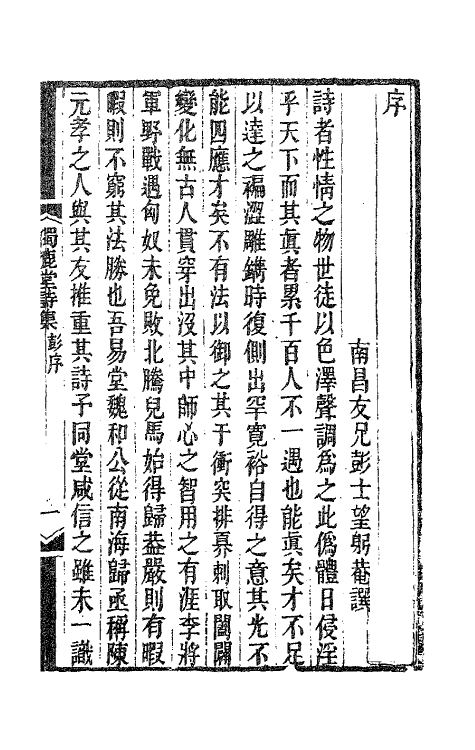 序
南昌友兄彭士望躬菴譔
詩者性情之物世徒以色澤聲調爲之此僞體日侵淫
乎天下而其眞者累千百人不一遇也能眞矣才不足
以達之褊澀雕鐫時復側出罕寬裕自得之意其光不
能四應才矣不有法以御之其于衝突排奡刺取闔闢
變化無古人貫穿出沒其中師心之智用之有涯李將
軍野戰遇匈奴未免敗北騰兒馬始得歸葢嚴則有暇
暇則不窮其法勝也吾易堂魏和公從南海歸亟稱陳
元孝之人與其友推重其詩子同堂咸信之雖未一識
獨漉堂詩集 彭序 一